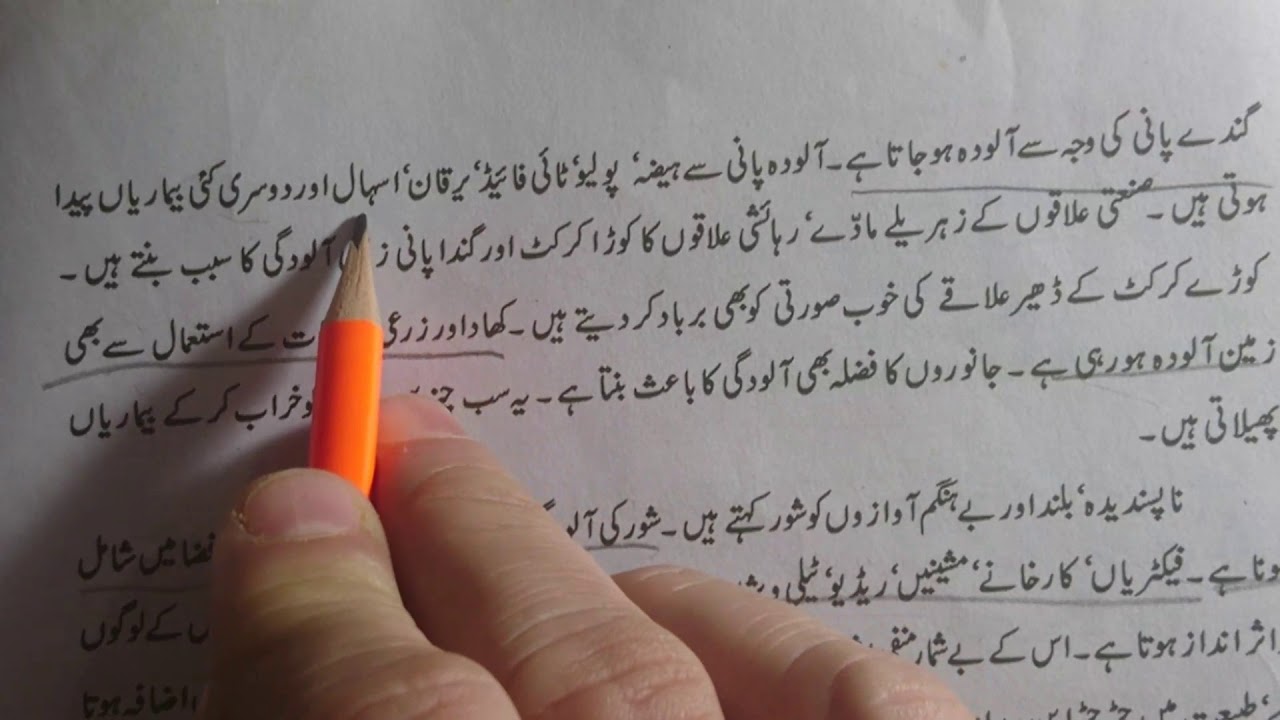 گندے پانی کی وجہ سے آلودہ ہوجاتا ہے۔ آلودہ پانی سے ہیضہ‘ پولیو‘ ٹائی فائیڈ‘ یرقان‘ اسہال اور دوسری کئی بیماریاں پیدا
ہوتی ہیں۔ صنعتی علاقوں کے زہریلے مادّے‘ رہائشی علاقوں کا کوڑا کرکٹ اور گندا پانی آلودگی کا سبب بنتے ہیں۔
کوڑے کرکٹ کے ڈھیر علاقے کی خوب صورتی کو بھی برباد کر دیتے ہیں۔ کھاد اور زرعی کے استعمال سے بھی
زمین آلودہ ہو رہی ہے۔ جانوروں کا فضلہ بھی آلودگی کا باعث بنتا ہے۔ یہ سب خراب کر کے بیماریاں
پھیلاتی ہیں۔
ناپسندیدہ‘ بلند اور بے ہنگم آوازوں کو شور کہتے ہیں۔ شور کی
ہے۔ فیکٹریاں‘ کارخانے‘ مشینیں‘ ریڈیو‘ ٹیلی فضا میں شامل
اثر انداز ہوتا ہے۔ اس کے بے شمار کے لوگوں
اضافہ ہوتا